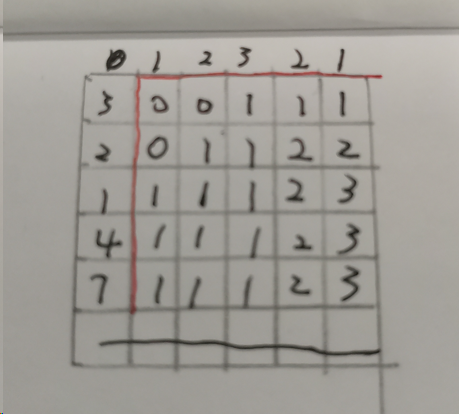 0 1 2 3 2 1
3 0 0 1 1 1
2 0 1 1 2 2
1 1 1 1 2 3
4 1 1 1 2 3
7 1 1 1 2 3